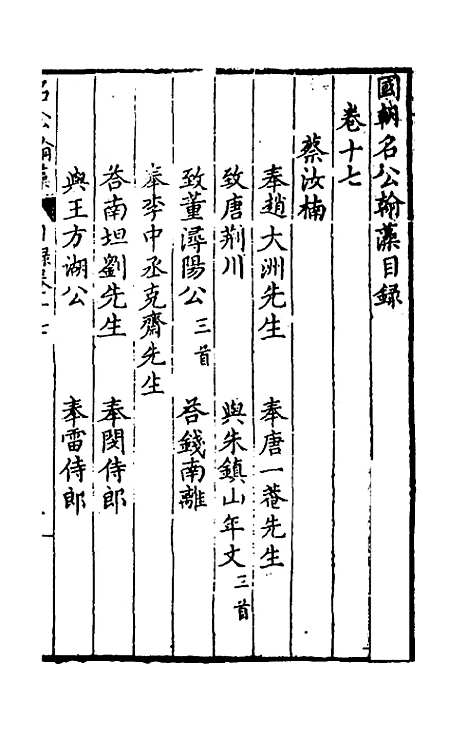 國朝名公翰藻目録
卷十七
蔡汝楠
奉趙大洲先生　奉唐一菴先生
致唐荆川　與朱鎮山年丈三首
致董潯陽公三首　荅錢南離
奉李中丞克齋先生
荅南坦劉先生　奉閔侍郎
與王方湖公　奉雷侍郎
名公翰藻